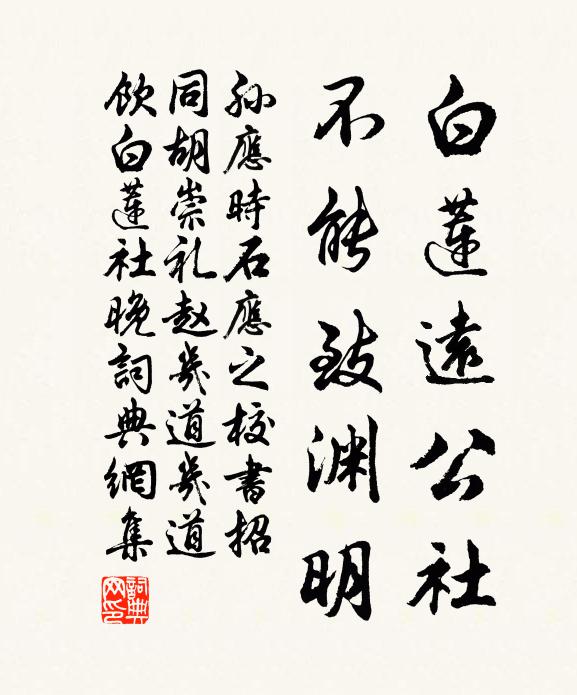 白蓮遠公社
不能致渊明
孙應時石應之校書招
同胡崇礼赵幾道幾道
飲白蓮社晚詞典網集
詞典
网印